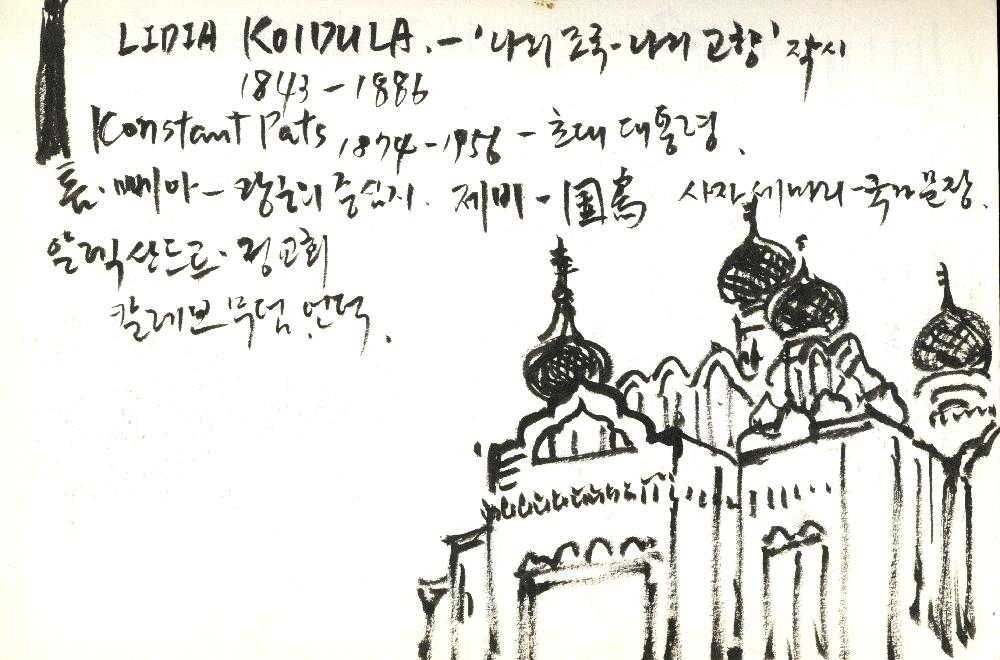 LIDIA KOIDULA. - '나의 조국 - 나의 고향' 작시
1843 - 1886
Konstant Pats 1874 - 1956 - 초대 대통령.
톰·뻬아 - 광장의 중심지. 제비 - 国鳥 사자 세마리 - 국가문장.
알렉산드르·정교회
칼레브 무덤 언덕.